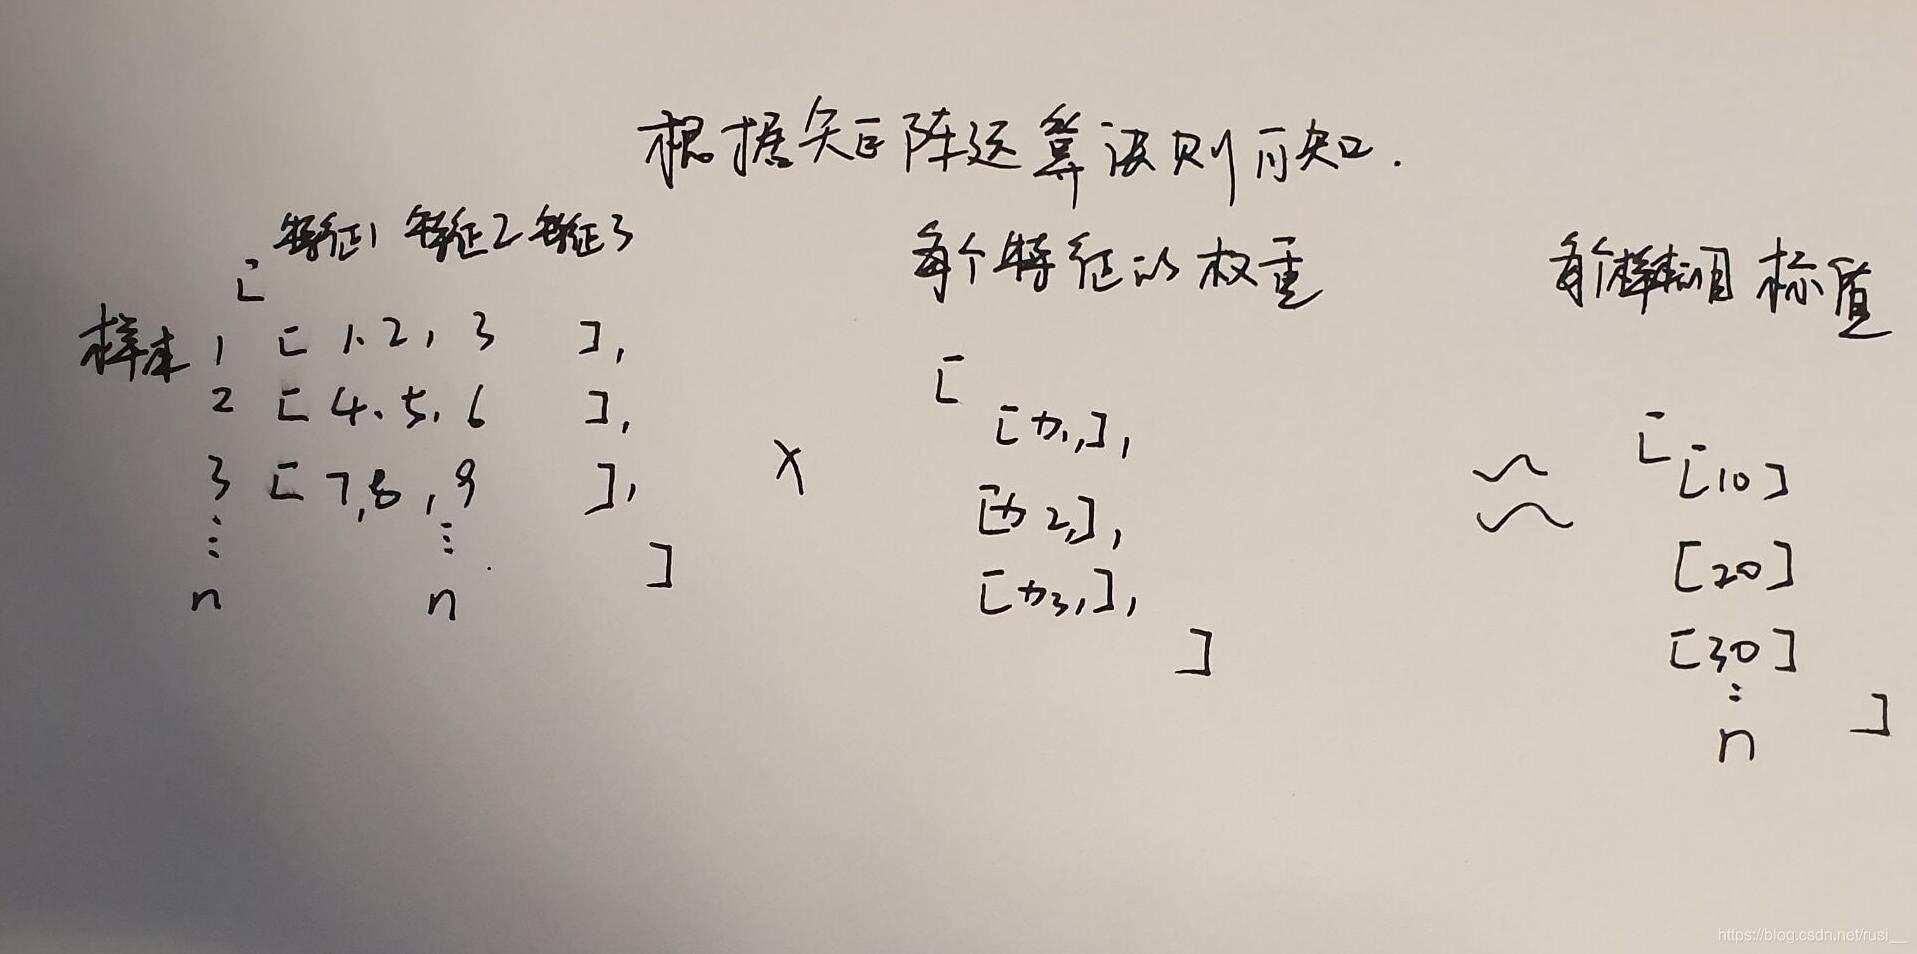 根据矩阵运算法则可知.
特征1 特征2 特征3
每个特征的权重
每个样本的目标值
[
样本 1 [ 1, 2, 3 ],
2 [ 4, 5, 6 ],
3 [ 7, 8, 9 ],
⋮ ⋮
n n
]
×
[
[力1,],
[力2,],
[力3,],
]
≈
[
[10]
[20]
[30]
⋮
n
]
https://blog.csdn.net/rusi__